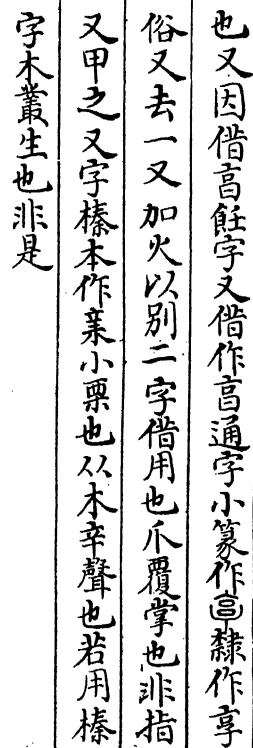 也又因借亯飪字又借作亯通字小篆作亯隸作享
俗又去一又加火以別二字借用也爪覆掌也非指
又甲之又字榛本作亲小栗也从木辛聲也若用榛
字木叢生也非是